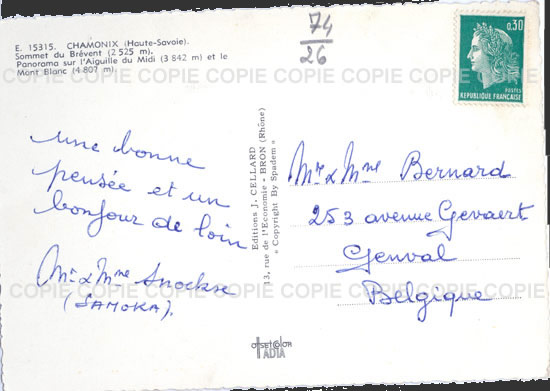 E. 15315. CHAMONIX (Haute-Savoie).
Sommet du Brévent (2 525 m).
Panorama sur l'Aiguille du Midi (3 842 m) et le
Mont Blanc (4 807 m).
74
26
0,30
POSTES
REPUBLIQUE FRANÇAISE
COPIE COPIE COPIE COPIE COPIE COPIE COPIE
une bonne
pensée et un
bonjour de loin
Mr & Mme Snockse
(SAMOKA).
Editions J. CELLARD
13, rue de l'Economie - BRON (Rhône)
" Copyright By Spadem "
Mr & Mme Bernard
253 avenue Gevaert
Genval
Belgique
COPIE COPIE COPIE COPIE COPIE COPIE COPIE
OFFSETCOLOR
IADIA